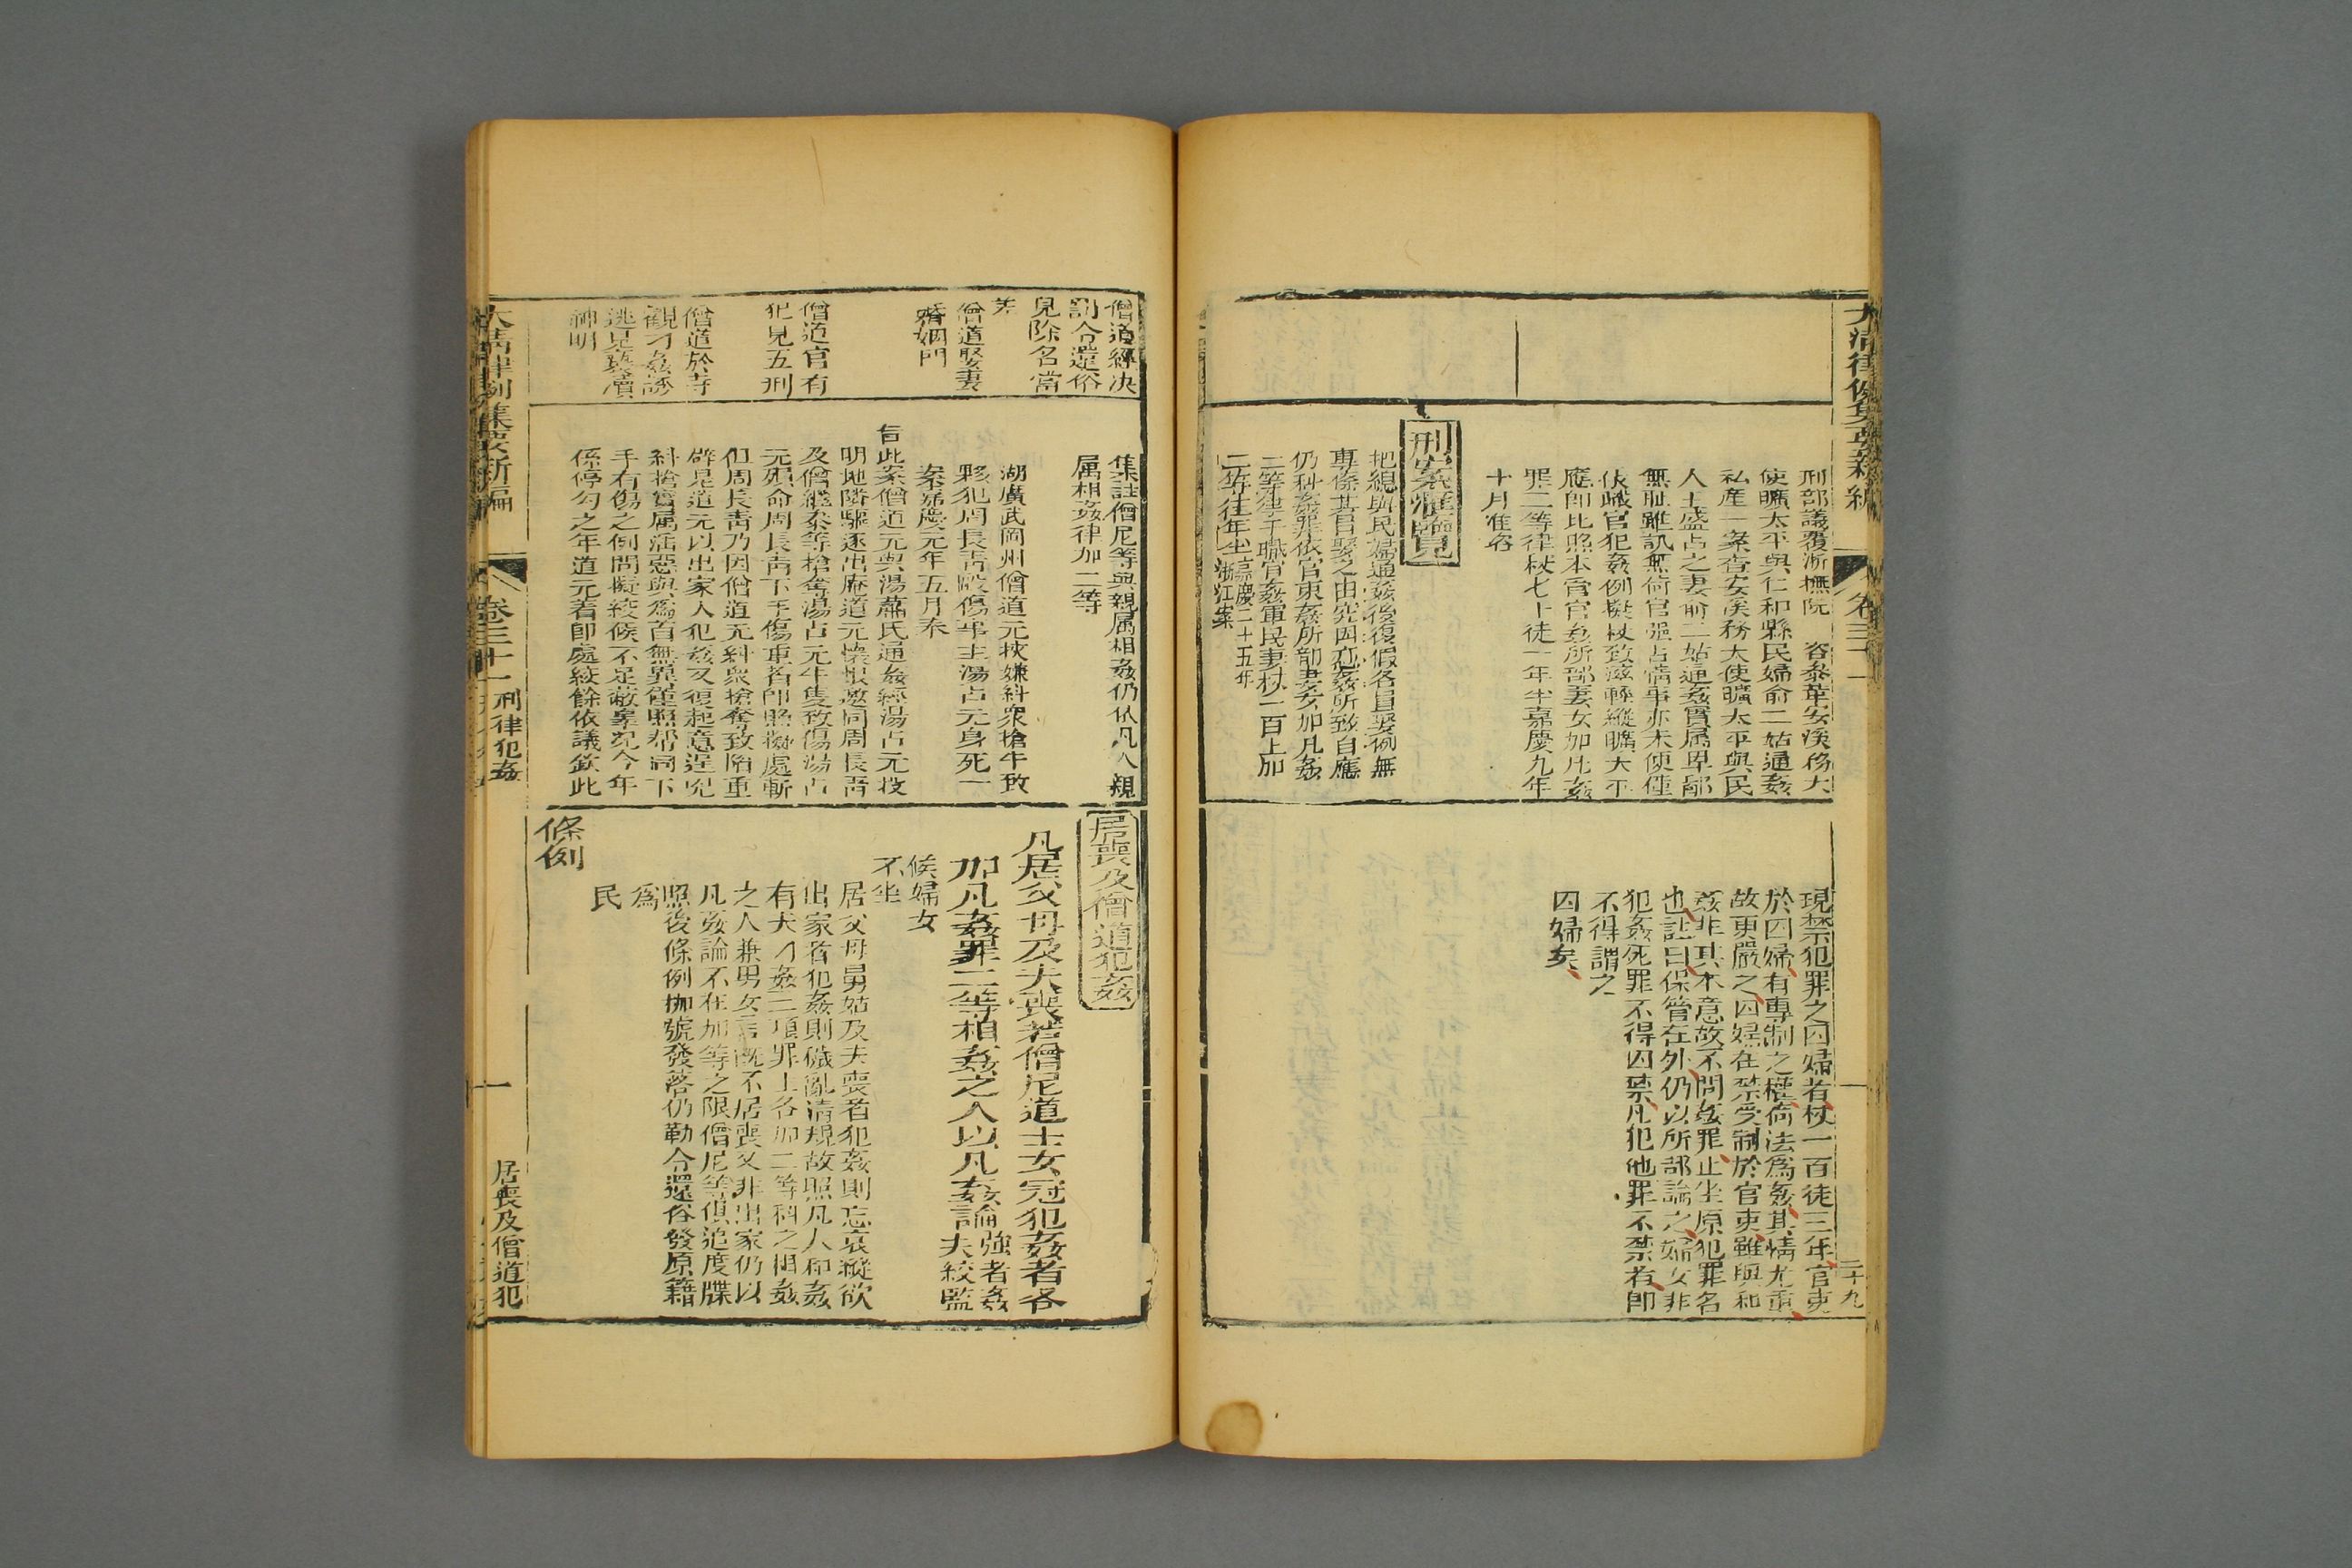 大清律例集要新編
卷三十一
二十九
刑部議覆浙撫阮 咨叅革安溪務大
使曠太平與仁和縣民婦俞二姑通姦
私產一案查安溪務大使曠太平與民
人王盛占之妻俞二姑通姦實属卑鄙
無耻雖訊無倚官强占情事亦未便僅
依職官犯姦例擬杖致滋輕縱曠太平
應即比照本管官姦所部妻女加凡姦
罪二等律杖七十徒一年半嘉慶九年
十月准咨
刑案滙覽
把總與民婦通姦後復假名買娶例無
專條其買娶之由究因姦所致自應
仍科姦罪依官吏姦所部妻女加凡姦
二等律于職官姦軍民妻杖一百上加
二等徒年半嘉慶二十五年浙江案
現禁犯罪之囚婦者杖一百徒三年官吏
於囚婦有專制之權倚法為姦其情尤重
故更嚴之囚婦在禁受制於官吏雖與和
姦非其本意故不問姦罪止坐原犯罪名
也註曰保管在外仍以所部論之婦女非
犯姦死罪不得囚禁凡犯他罪不禁者即
不得謂之
囚婦矣
僧道經决
罰令還俗
見除名當
差
僧道娶妻
見婚姻門
僧道官有
犯見五刑
僧道於寺
觀刁姦誘
逃見褻瀆
神明
集註僧尼等與親属相姦仍依凡人親
属相姦律加二等
湖廣武岡州僧道元挾嫌糾衆搶牛致
夥犯周長青毆傷事主湯占元身死一
案嘉慶元年五月奉
旨此案僧道元與湯蕭氏通姦經湯占元投
明地隣驅逐出庵道元懷恨邀同周長青
及僧繼泰等搶奪湯占元牛隻致傷湯占
元殞命周長青下手傷重着即照擬處斬
但周長青乃因僧道元糾衆搶奪致陷重
辟是道元以出家人犯姦又復起意逞兇
糾搶實属淫惡與為首無異僅照帮同下
手有傷之例問擬絞候不足蔽辜况今年
係停勾之年道元著即處絞餘依議欽此
居喪及僧道犯姦
凡居父母及夫喪若僧尼道士女冠犯姦者各
加凡姦罪二等相姦之人以凡姦論強者姦夫絞監
候婦女
不坐
居父母舅姑及夫喪者犯姦則忘哀縱欲
出家者犯姦則穢亂清規故照凡人和姦
有夫刁姦二項罪上各加二等科之相姦
之人兼男女言既不居喪又非出家仍以
凡姦論不在加等之限僧尼等俱追度牒
照後條例枷號發落仍勒令還俗發原籍
為
民
條例
大清律例集要新編
卷三十一
刑律犯姦
居喪及僧道犯